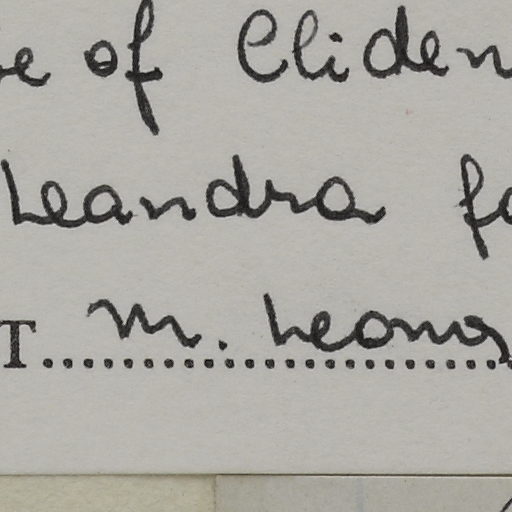 e of Cliden
Leandra fo
T M. Leong